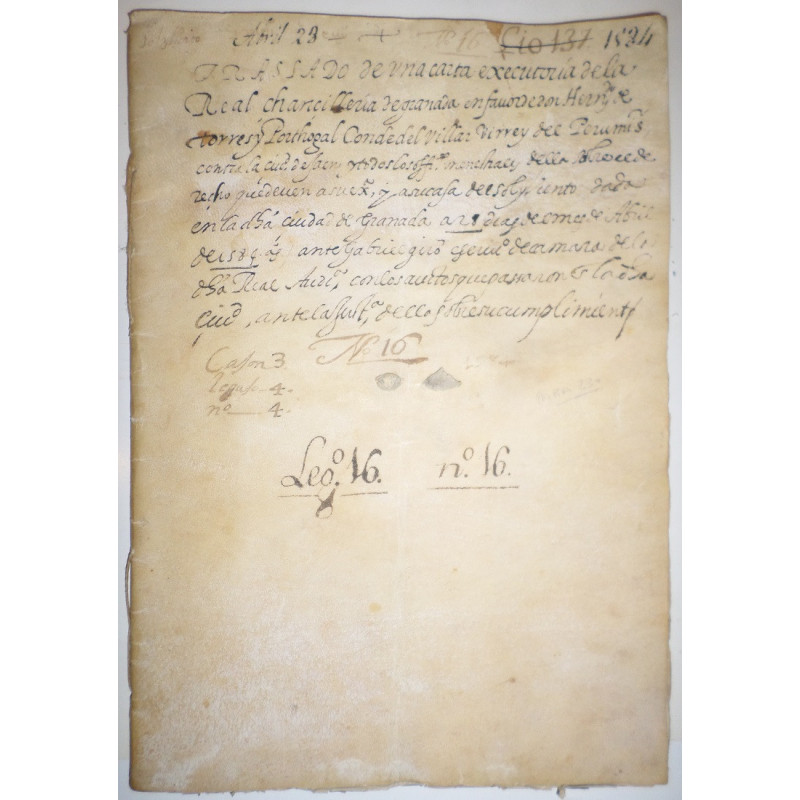 Abril 23 + Nº 16 Gio 137 1584
TRASLADO de una carta executoria de la
Real chancilleria de granada en favor de don Hern.do de
torres y Porthogal Conde del Villar Virrey del Peru mis
contra la ciud de Jaen, y todos los offi.os della sobre el de
recho que deven a su ex.ª, y a su casa dada
en la dhª ciudad de Granada a 28 dias del mes de Abril
de 1584 aº ante Gabriel escriuº de camara de la
dhª Real Audiª, con los autos que passaron en la dha
Ciud, ante la Justª dellos sobre su cumplimiento
Cason 3.
Nº 16
legaso 4.
nº 4.
Legº. 16. nº. 16.